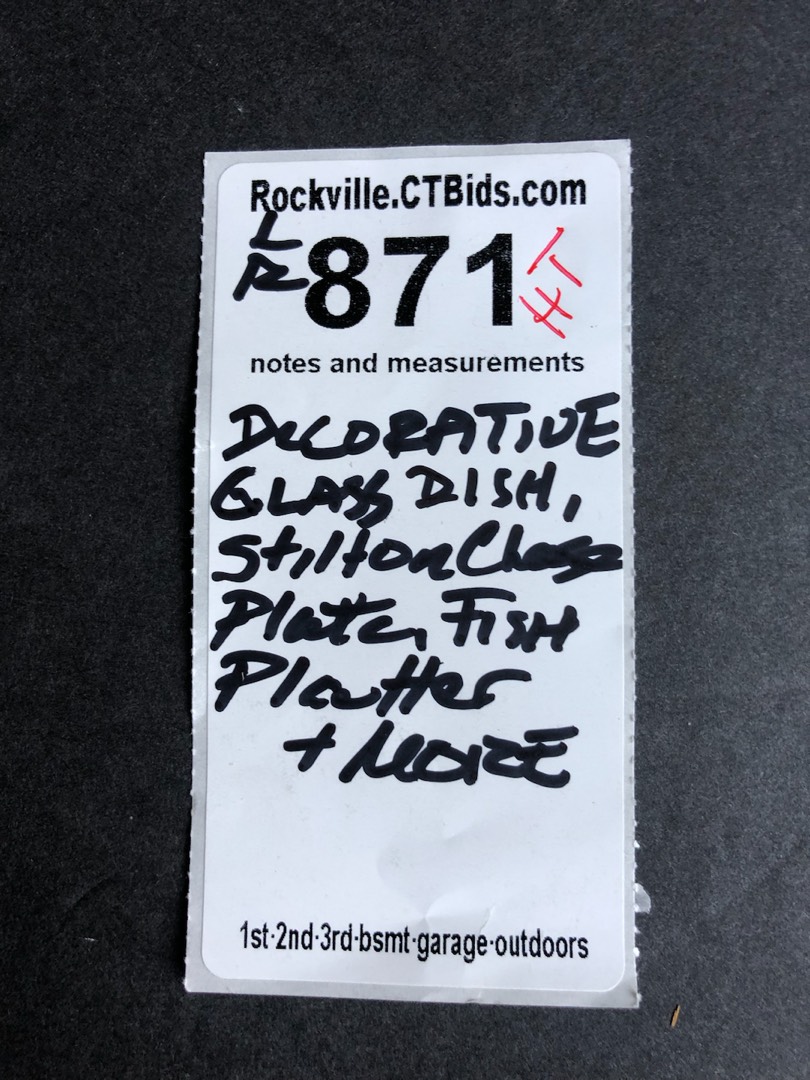 Rockville.CTBids.com
LR 871 HT
notes and measurements
DECORATIVE
GLASS DISH,
Stilton Cheese
Plate, FISH
Platter
+ MORE
1st·2nd·3rd·bsmt·garage·outdoors